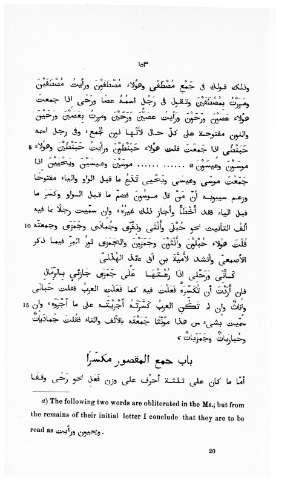 ١٥٣
وذلك قولك فى جَمْع مُصْطَفًى وهؤلاء مُصْطَفَوْنَ ورأيت مُصْطَفَيْنَ
ومررت بمُصْطَفَيْنَ وتقول فى رجل اسمه عصا ورَحًى اذا جمعت
هؤلاء عَصَوْنَ ورَحَوْنَ ورأيت عَصَيْنَ ورَحَيْنَ ومررت بعَصَيْنَ ورَحَيْنَ
والنون مفتوحة على كلّ حال لأنّها نون لجمع، وفى رجل اسمه
حَبَنْطًى اذا جمعت قلت هؤلاء حَبَنْطَوْنَ ورأيت حَبَنْطَيْنَ وهؤلاء
موسَوْنَ وعيسَوْنَ a .......... موسَيْنَ وعيسَيْنَ ويَحْيَيْنَ اذا
جَمَعت موسى وعيسى ويَحْيى تَدَع ما قبل الواو والياء مفتوحا
وزعم سيبويه أنّ مَنْ قال موسُونَ فضمّ ما قبل الواو وكسر ما
قبل الياء فقد أَخْطَأَ وأجاز ذلك غيره، وان سمّيت رجلا بما فيه
10 ألف التأنيث نحو حُبْلَى وأُنْثَى وجَمَزَى وجمعته
قلت هؤلاء حُبْلَوْنَ وأُنْثَوْنَ وجَمَزَوْنَ والجَمَزَى ثور فيما ذكر
الأصمعىّ وأنشد لأُميّة بن أبى عائذ الهُذَلىّ
كأَنّى ورَحْلى اذا على جَمَزَى جازِئٍ بالرِمالِ
فإن أردتَ أن تُكسّره فعلت فيه كما فعلت العرب فقلت حَبالى
15 وإناث وإن لم تكن العرب كَسّرَتْه أجريتَه على ما أجروه، وإن
سمّيت بشىء من هذا مؤنّثا جمعته بالألف والتاء فقلت جُمادَيات
وحُبارَيات وجَمَزَيات
باب جمع المقصور مكسّرا
أمّا ما كان على ثلثة أحرف على وزن فَعَلٍ نحو رَحًى وقَفًا
a) The following two words are obliterated in the Ms.; but from
the remains of their initial letter I conclude that they are to be
read as ويحيون ورأيت.
20